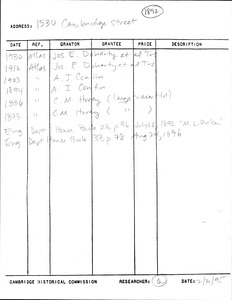 1892
ADDRESS: 1530 Cambridge Street
DATE REF. GRANTOR GRANTEE PRICE DESCRIPTION
1930 Atlas Jos. E. Doherty et al Trs
1916 Atlas Jos. F. Doherty et al Trs
1903 " A. J. Conlin
1894 " A I Conlin
1886 " C M Hovey (large vacant lot)
1873 " C M Hovey ( " )
Eng. Dept House Book 26, p.96 1892
Eng Dept House Book 33, p.78 Aug 24, 1896
CAMBRIDGE HISTORICAL COMMISSION RESEARCHER: DATE: 2/21/95